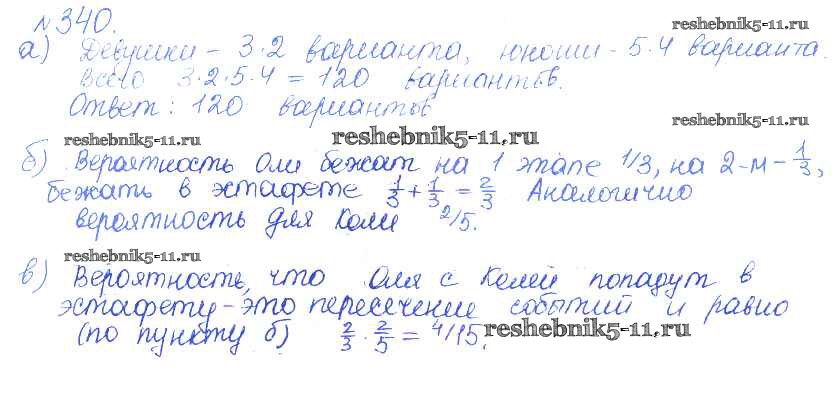 № 340.
reshebnik5-11.ru
а) Девушки - 3·2 варианта, юноши - 5·4 варианта.
Всего 3·2·5·4 = 120 вариантов.
Ответ: 120 вариантов
reshebnik5-11.ru
reshebnik5-11.ru
reshebnik5-11.ru
б) Вероятность Оли бежать на 1 этапе 1/3, на 2-м - 1/3,
бежать в эстафете 1/3 + 1/3 = 2/3 Аналогично
вероятность для Коли 2/5.
reshebnik5-11.ru
в) Вероятность, что Оля с Колей попадут в
эстафету - это пересечение событий и равно
(по пункту б) 2/3 · 2/5 = 4/15.
reshebnik5-11.ru